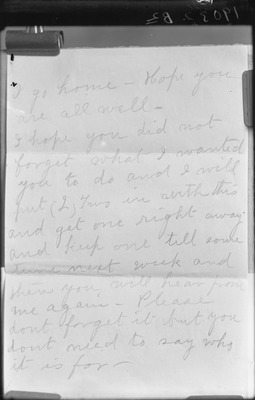 1903 . B2
I go home – Hope you
are all well –
I hope you did not
forget what I wanted
you to do and I will
put (2) Two in with this
and get one right away
and keep one till some
time next week and
then you will hear from
me again – Please
dont forget it but you
dont need to say who
it is for –